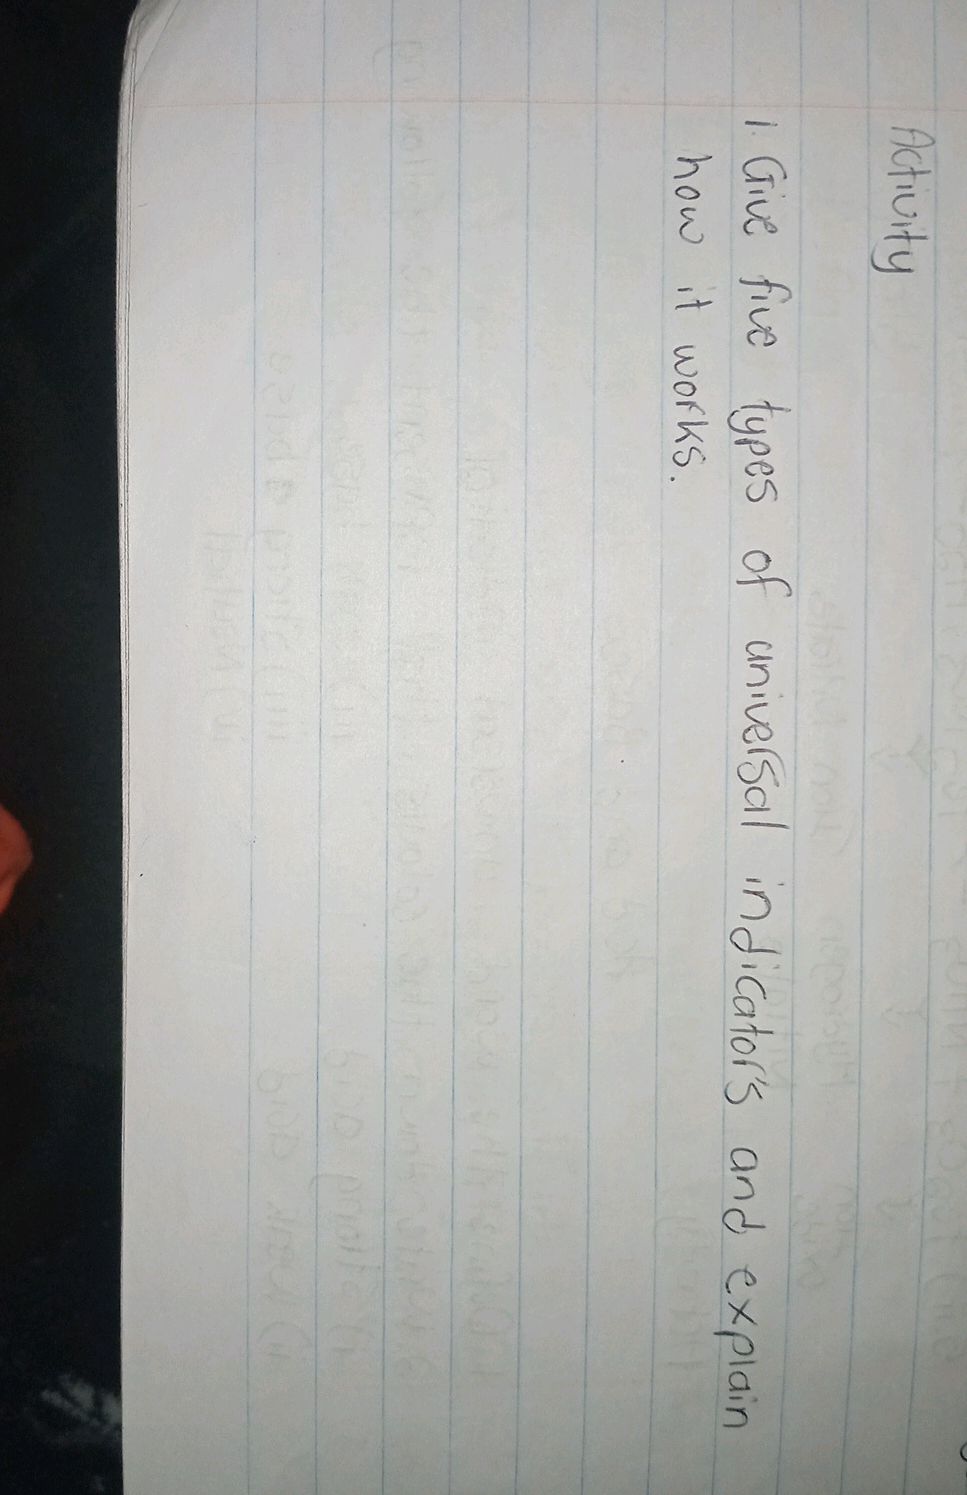 Activity
1. Give five types of universal indicator's and explain
how it works.